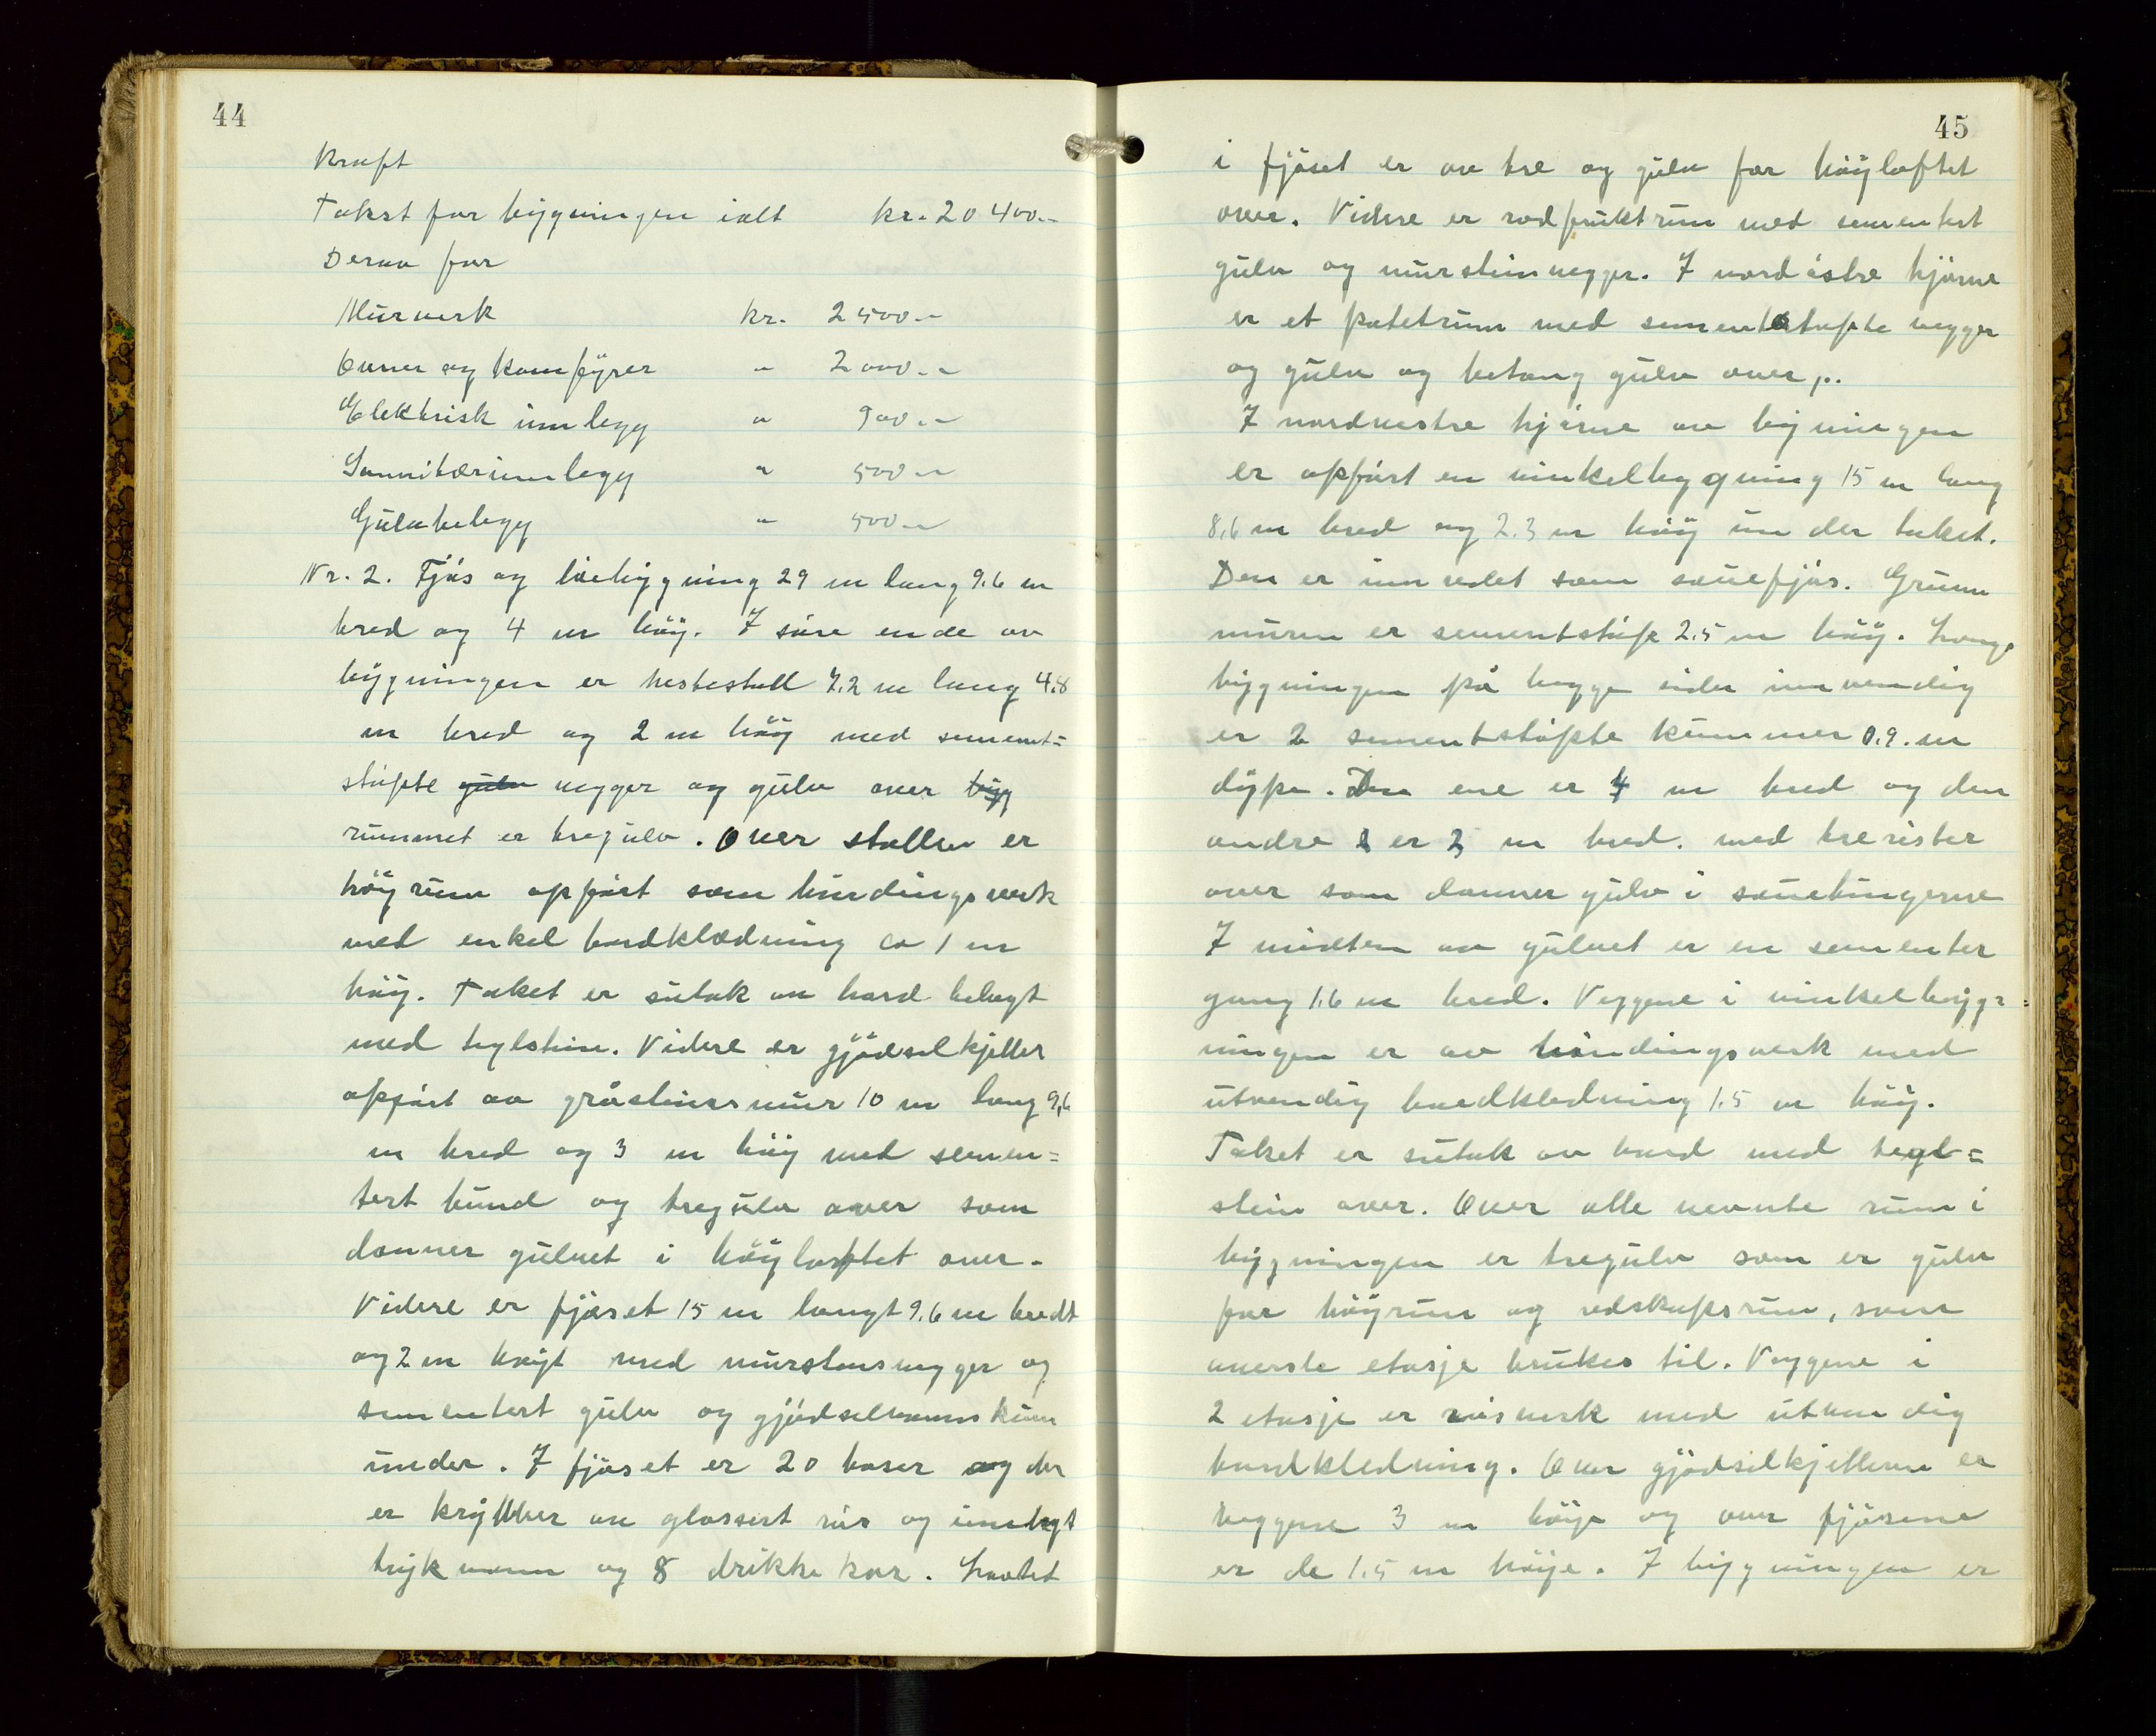 44
kraft
Takst for bygningen ialt kr. 20 400.-
Derav for
Murverk kr. 2 500.-
Ovner og komfyrer " 2 000.-
Elektrisk innlegg " 900.-
Sannitærinnlegg " 500.-
Gulvbelegg " 500.-
Nr. 2. Fjös og löebygning 29 m lang 9.6 m
bred og 4 m höy. I söre ende av
bygningen er hestestall 7.2 m lang 4.8
m bred og 2 m höy med sement=
stöpte gulv vegger og gulv over byg
rummet er tregulv. Over stallen er
höyrum opfört som bindingsverk
med enkel bordklædning ca 1 m
höy. Taket er sutak av bord belagt
med teglstein. Videre er gjödselkjeller
opfört av gråsteinsmur 10 m lang 9,6
m bred og 3 m höy med semen=
tert bund og tregulv over som
danner gulvet i höyloftet over.
Videre er fjöset 15 m langt 9.6 m bredt
og 2 m höyt med murstensvegger og
sementert gulv og gjödselvannskum
under. I fjöset er 20 baser og der
er krybber av glassert rör og innlagt
trykvann og 8 drikkekar. Loftet
45
i fjöset er av tre og gulv for höyloftet
over. Videre er rodfruktrum med sementert
gulv og murstein vegger. I nordöstre hjörne
er et potetrum med sementstöpte vegger
og gulv og betong gulv over,..
I nordvestre hjörne av bygningen
er opfört en vinkelbygging 15 m lang
8,6 m bred og 2.3 m höy under taket.
Den er innredet som sauefjös. Grunn
muren er sementstöpt 2.5 m höy. Langs
bygningen på begge sider innvendig
er 2 sementstöpte kummer 0.9. m
dype. Den ene er 4 m bred og den
andre er 2 m bred. med trerister
over som danner gulv i sauebingerne
I midten av gulvet er en sementer
gang 1.6 m bred. Veggene i vinkelbygg=
ningen er av bindingsverk med
utvendig bordkledning 1.5 m höy.
Taket er sutak av bord med tegl=
stein over. Over alle nevnte rum i
bygningen er tregulv som er gulv
for höyrum og redskapsrum, som
överste etasje brukes til. Veggene i
2 etasje er reisverk med utvendig
bordkledning. Over gjödselkjelleren er
veggene 3 m höye og over fjösene
er de 1.5 m höye. I bygningen er